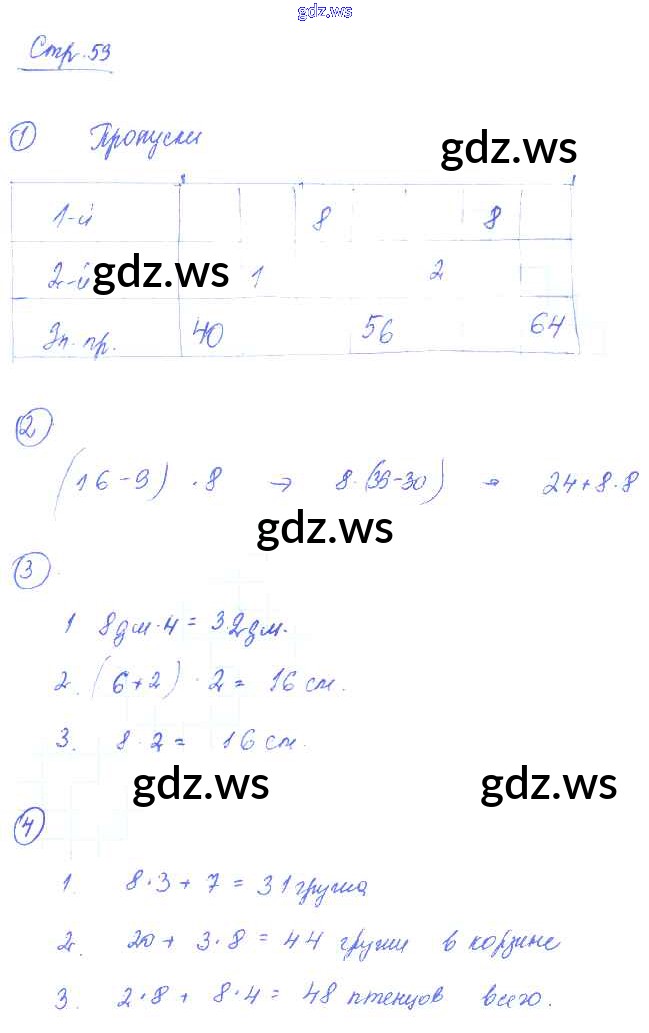 gdz.ws
Стр. 59
1 Пропуски
gdz.ws
1-й 8 8
2-й 1 2
gdz.ws
Зн. пр. 40 56 64
2
(16-9) · 8 → 8·(36-30) → 24+8·8
gdz.ws
3
1 8дм·4= 32дм.
2. (6+2) · 2 = 16 см.
3. 8·2= 16 см.
gdz.ws gdz.ws
4
1. 8·3+7=31 груша
2. 20+3·8=44 груши в корзине
3. 2·8+8·4=48 птенцов всего.